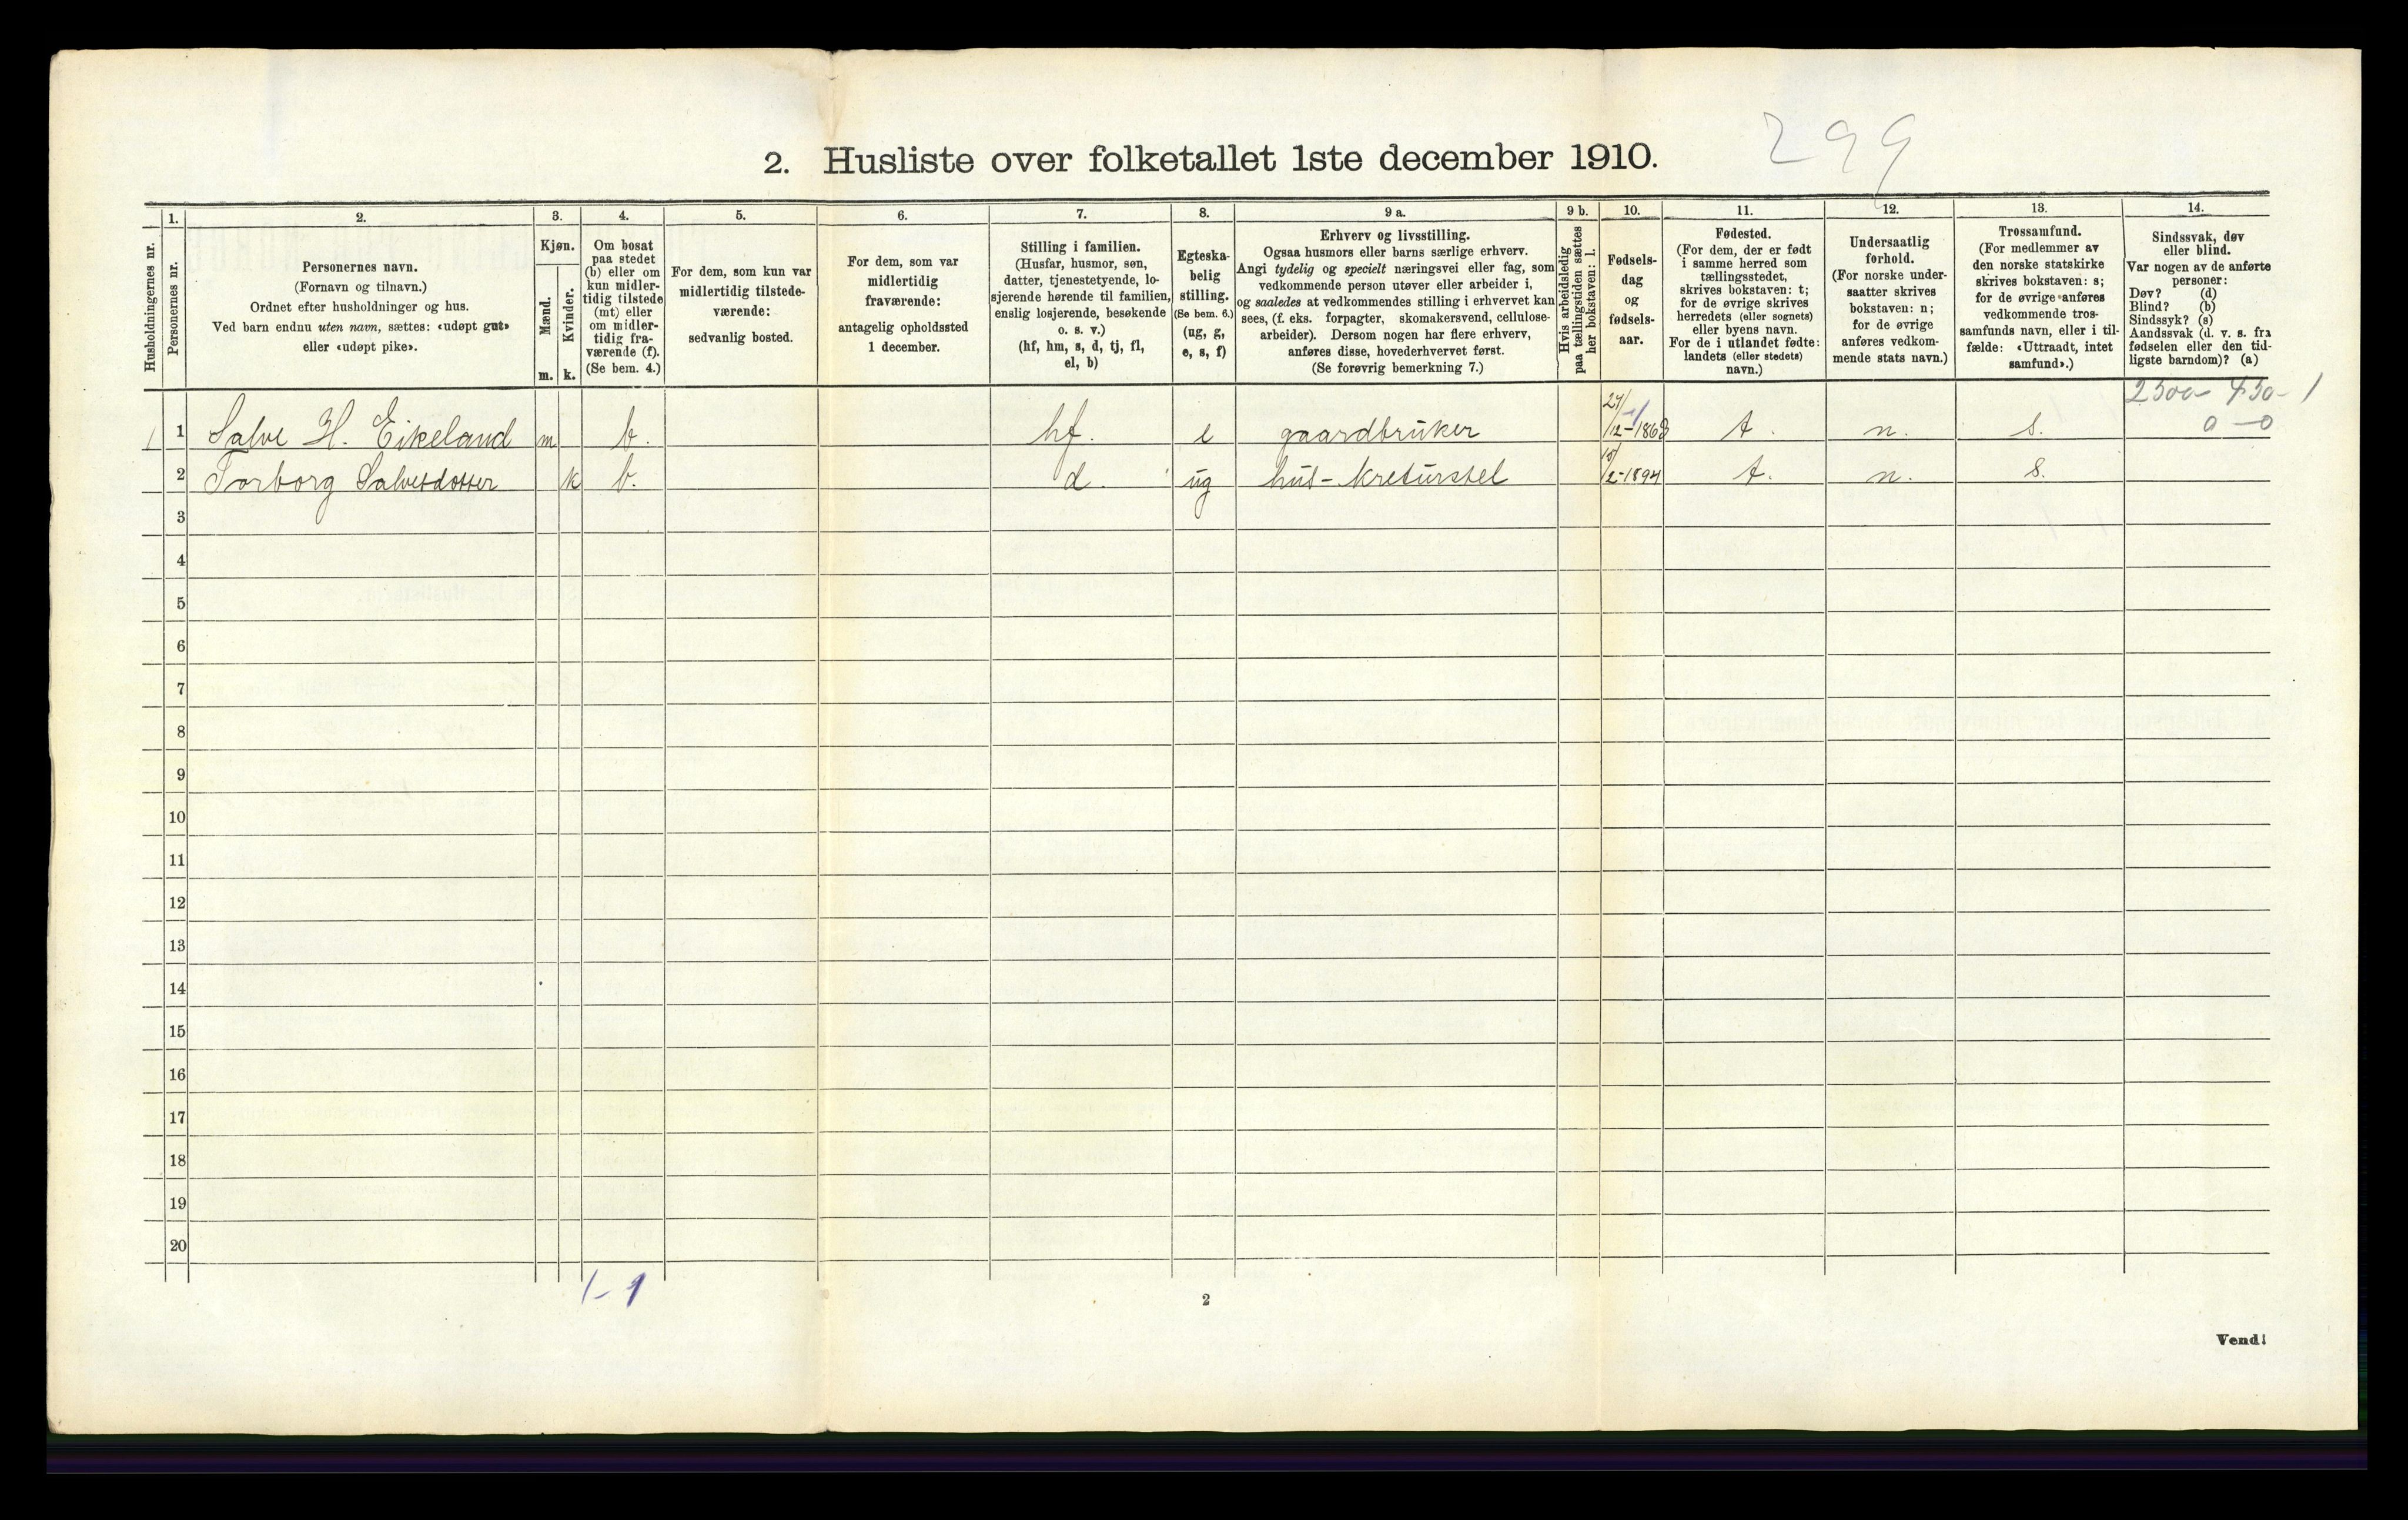 299
2. Husliste over folketallet 1ste december 1910.
Husholdningernes nr.
1.
Personernes nr.
2.
Personernes navn.
(Fornavn og tilnavn.)
Ordnet efter husholdninger og hus.
Ved barn endnu uten navn, sættes: «udøpt gut»
eller «udøpt pike».
3.
Kjøn.
Mænd.
m.
Kvinder.
k.
4.
Om bosat
paa stedet
(b) eller om
kun midler-
tidig tilstede
(mt) eller
om midler-
tidig fra-
værende (f).
(Se bem. 4.)
5.
For dem, som kun var
midlertidig tilstede-
værende:
sedvanlig bosted.
6.
For dem, som var
midlertidig
fraværende:
antagelig opholdssted
1 december.
7.
Stilling i familien.
(Husfar, husmor, søn,
datter, tjenestetyende, lo-
sjerende hørende til familien,
enslig losjerende, besøkende
o. s. v.)
(hf, hm, s, d, tj, fl,
el, b)
8.
Egteska-
belig
stilling.
(Se bem. 6.)
(ug, g,
e, s, f)
9 a.
Erhverv og livsstilling.
Ogsaa husmors eller barns særlige erhverv.
Angi tydelig og specielt næringsvei eller fag, som
vedkommende person utøver eller arbeider i,
og saaledes at vedkommendes stilling i erhvervet kan
sees, (f. eks. forpagter, skomakersvend, cellulose-
arbeider). Dersom nogen har flere erhverv,
anføres disse, hovederhvervet først.
(Se forøvrig bemerkning 7.)
9 b.
Hvis arbeidsledig
paa tællingstiden sættes
her bokstaven: l.
10.
Fødsels-
dag
og
fødsels-
aar.
11.
Fødested.
(For dem, der er født
i samme herred som
tællingsstedet,
skrives bokstaven: t;
for de øvrige skrives
herredets (eller sognets)
eller byens navn.
For de i utlandet fødte:
landets (eller stedets)
navn.)
12.
Undersaatlig
forhold.
(For norske under-
saatter skrives
bokstaven: n;
for de øvrige
anføres vedkom-
mende stats navn.)
13.
Trossamfund.
(For medlemmer av
den norske statskirke
skrives bokstaven: s;
for de øvrige anføres
vedkommende tros-
samfunds navn, eller i til-
fælde: «Uttraadt, intet
samfund».)
14.
Sindssvak, døv
eller blind.
Var nogen av de anførte
personer:
Døv? (d)
Blind? (b)
Sindssyk? (s)
Aandssvak (d. v. s. fra
fødselen eller den tid-
ligste barndom)? (a)
2500 - 450 - 1
0 - 0
1 1 Salve H. Eikeland m b. hf. e gaardbruker t. n. s.
2 Torborg Salvesdotter k b. d. ug hus-kreturstel t. n. s.
3
4
5
6
7
8
9
10
11
12
13
14
15
16
17
18
19
20
1-1
2
Vend!